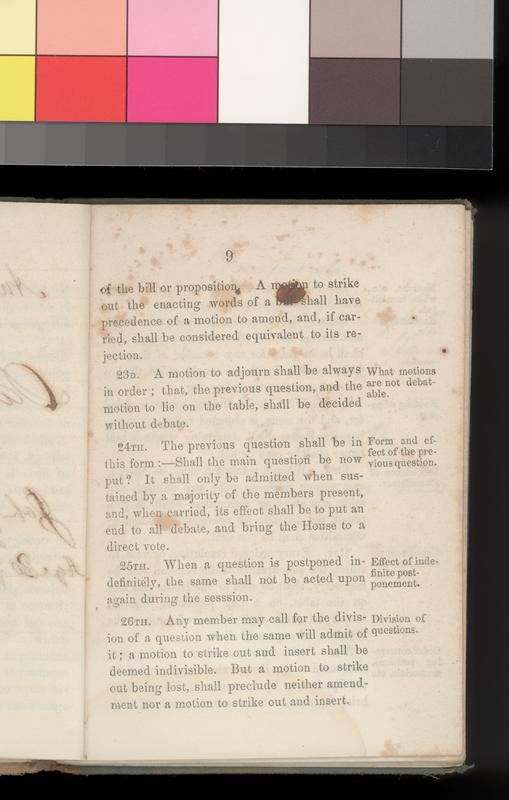 9
of the bill or proposition. A motion to strike
out the enacting words of a bill shall have
precedence of a motion to amend, and, if car-
ried, shall be considered equivalent to its re-
jection.
23D. A motion to adjourn shall be always
in order; that, the previous question, and the
motion to lie on the table, shall be decided
without debate.
What motions
are not debat-
able.
24TH. The previous question shall be in
this form:—Shall the main question be now
put? It shall only be admitted when sus-
tained by a majority of the members present,
and, when carried, its effect shall be to put an
end to all debate, and bring the House to a
direct vote.
Form and ef-
fect of the pre-
vious question.
25TH. When a question is postponed in-
definitely, the same shall not be acted upon
again during the sesssion.
Effect of inde-
finite post-
ponement.
26TH. Any member may call for the divis-
ion of a question when the same will admit of
it; a motion to strike out and insert shall be
deemed indivisible. But a motion to strike
out being lost, shall preclude neither amend-
ment nor a motion to strike out and insert.
Division of
questions.